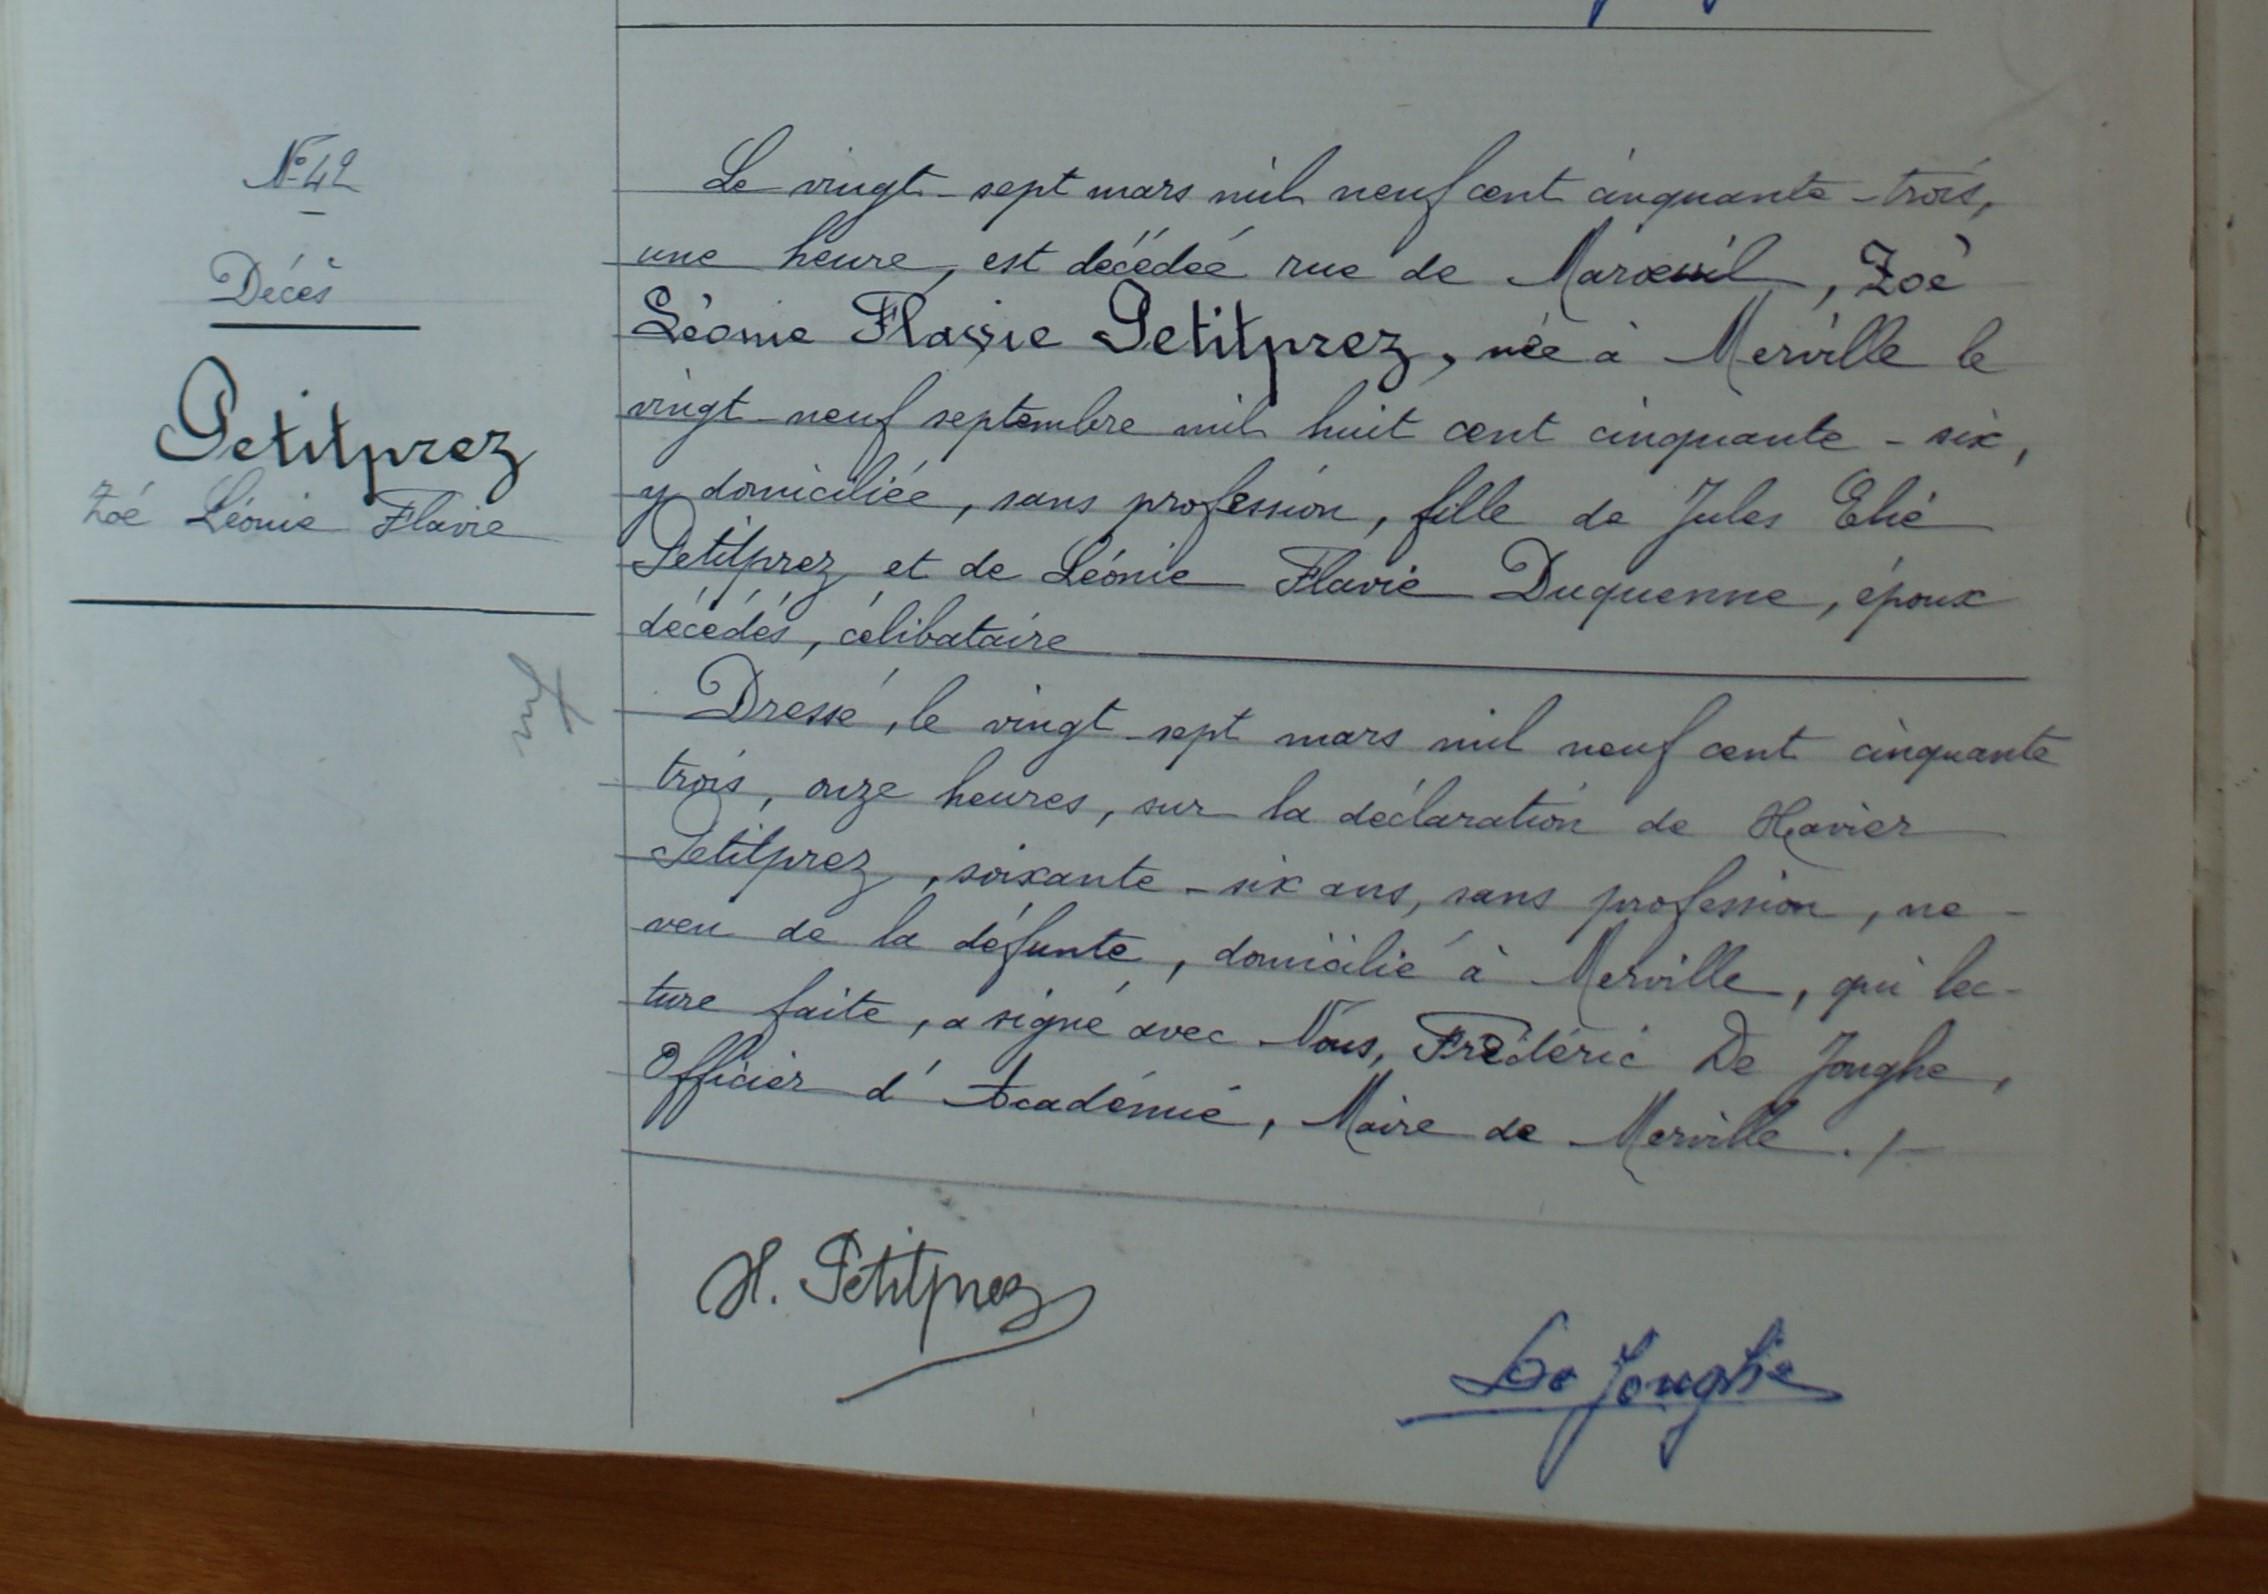 N° 42
Décès
Petitprez
Zoé Léonie Flavie
Le vingt-sept mars mil neuf cent cinquante-trois,
une heure, est décédée rue de Maroeuil, Zoé
Léonie Flavie Petitprez, née à Merville le
vingt-neuf septembre mil huit cent cinquante-six,
y domiciliée, sans profession, fille de Jules Elie
Petitprez et de Léonie Flavie Duquenne, époux
décédés, célibataire
Dressé, le vingt-sept mars mil neuf cent cinquante
trois, onze heures, sur la déclaration de Xavier
Petitprez, soixante-six ans, sans profession, ne-
veu de la défunte, domicilié à Merville, qui lec-
ture faite, a signé avec Nous, Frédéric De Jonghe,
Officier d'Académie, Maire de Merville ./-
X. Petitprez
De Jonghe